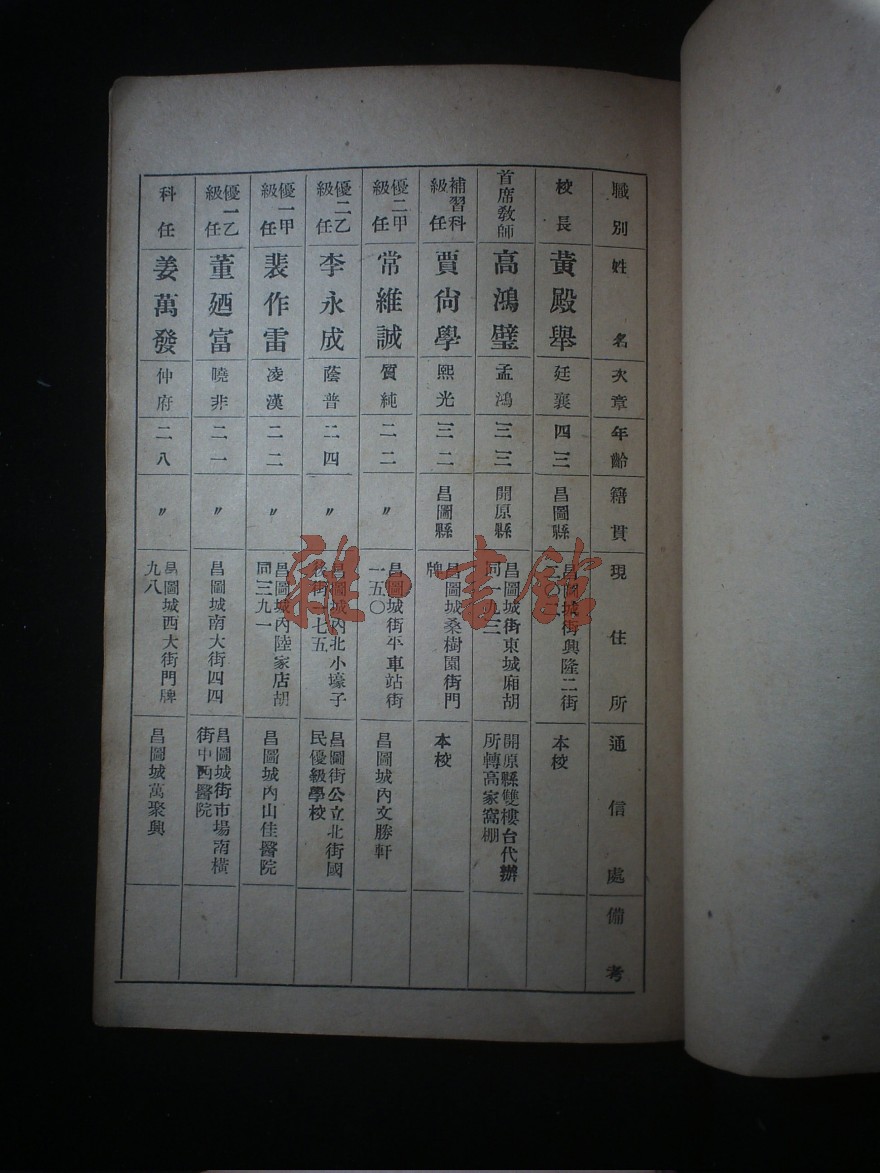 職別
姓名
次章
年齡
籍貫
現住所
通信處
備考
校長
黃殿舉
廷襄
四三
昌圖縣
昌圖城街興隆二街
本校
首席教師
高鴻璧
孟鴻
三三
開原縣
昌圖城街東城廂胡
同一九三
開原縣雙樓台代辦
所轉高家窩棚
補習科
級任
賈尙學
熙光
三二
昌圖縣
昌圖城桑樹園街門
牌
本校
優二甲
級任
常維誠
質純
二二
〃
昌圖城街平車站街
一五〇
昌圖城內文勝軒
優二乙
級任
李永成
蔭普
二四
〃
昌圖城內北小壕子
後街七五
昌圖街公立北街國
民優級學校
優一甲
級任
裴作雷
凌漢
二二
〃
昌圖城內陸家店胡
同三九一
昌圖城內山佳醫院
優一乙
級任
董廼富
曉非
二一
〃
昌圖城南大街四四
昌圖城街市場南橫
街中西醫院
科任
姜萬發
仲府
二八
〃
昌圖城西大街門牌
九八
昌圖城萬聚興
雜·書館